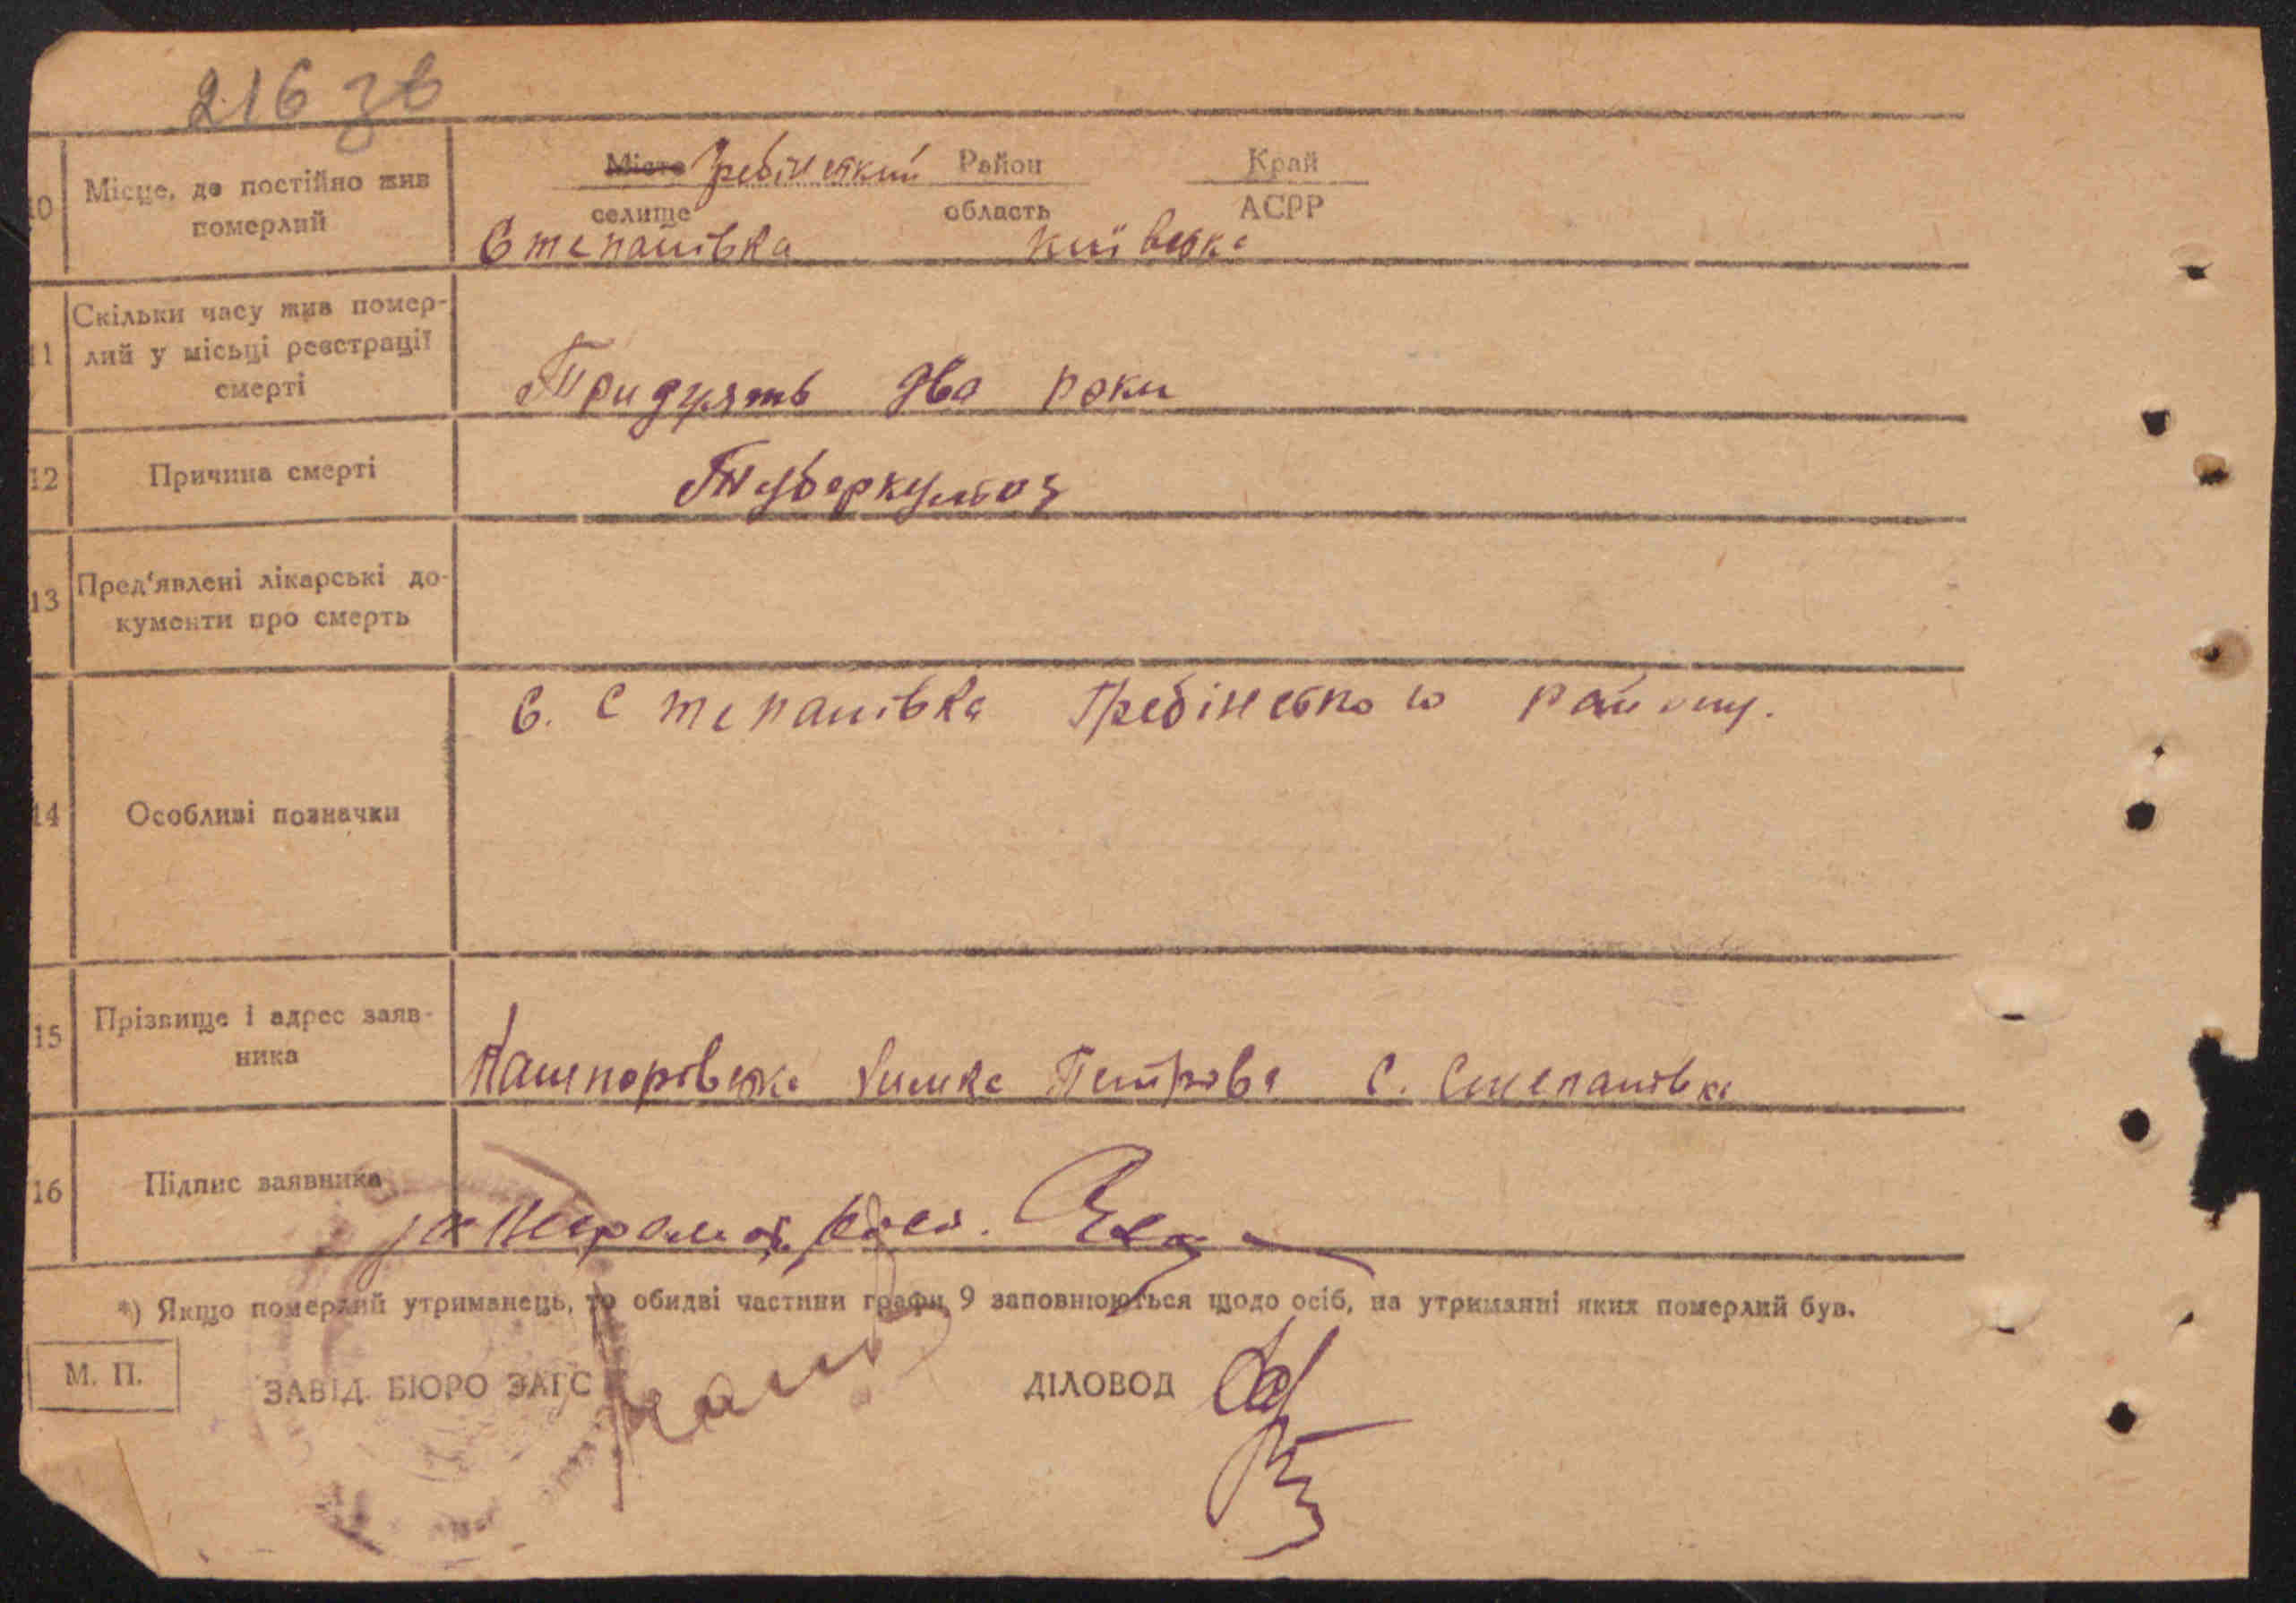 216 зв
10 Місце, де постійно жив померлий
Місто Гребінський Район Край
селище область АСРР
Степанівка Київська
11 Скільки часу жив помер-
лий у місьці реєстрації
смерті
Тридцять два роки
12 Причина смерті
Туберкульоз
13 Пред'явлені лікарські до-
кументи про смерть
14 Особливі позначки
С. Степанівка Гребінського району.
15 Прізвище і адрес заяв-
ника
Петрова с. Степанівка
16 Підпис заявника
*) Якщо померлий утриманець, то обидві частини графи 9 заповнюються щодо осіб, на утриманні яких померлий був.
М. П.
ЗАВІД. БЮРО ЗАГС ДІЛОВОД